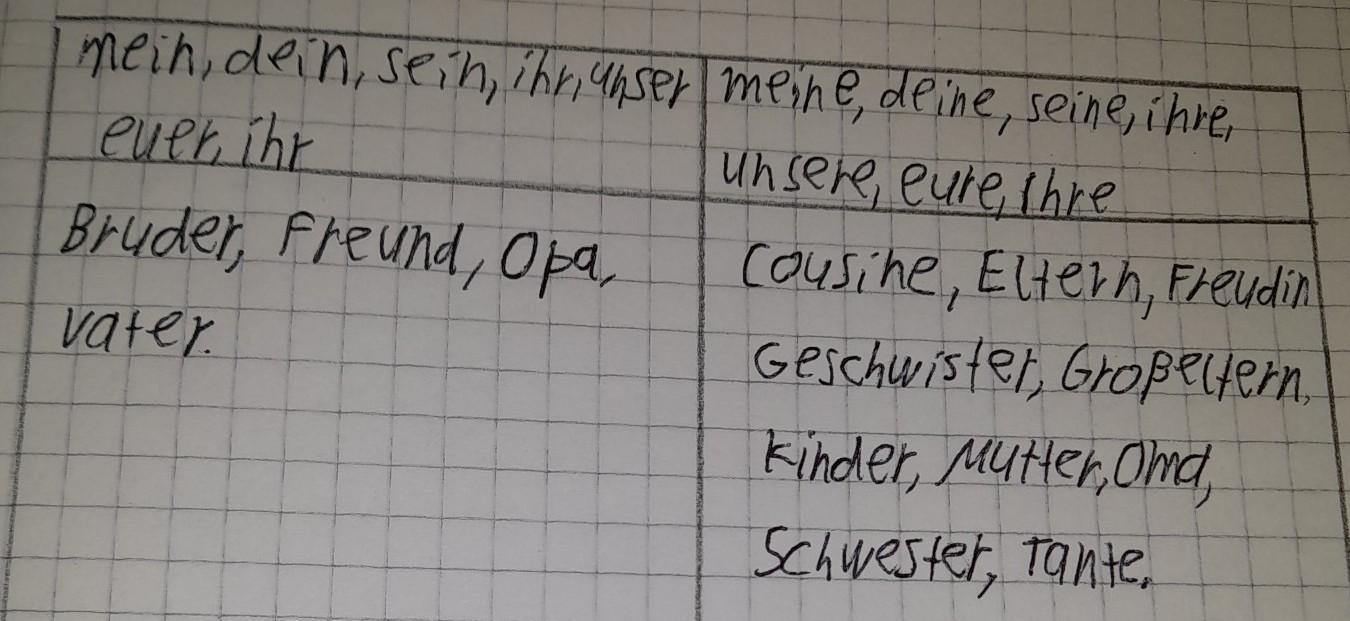 mein, dein, sein, ihr, unser
euer, ihr
meine, deine, seine, ihre,
unsere, eure, Ihre
Bruder, Freund, Opa,
vater.
Cousine, Eltern, Freudin
Geschwister, Großeltern,
Kinder, Mutter, Oma,
Schwester, Tante.